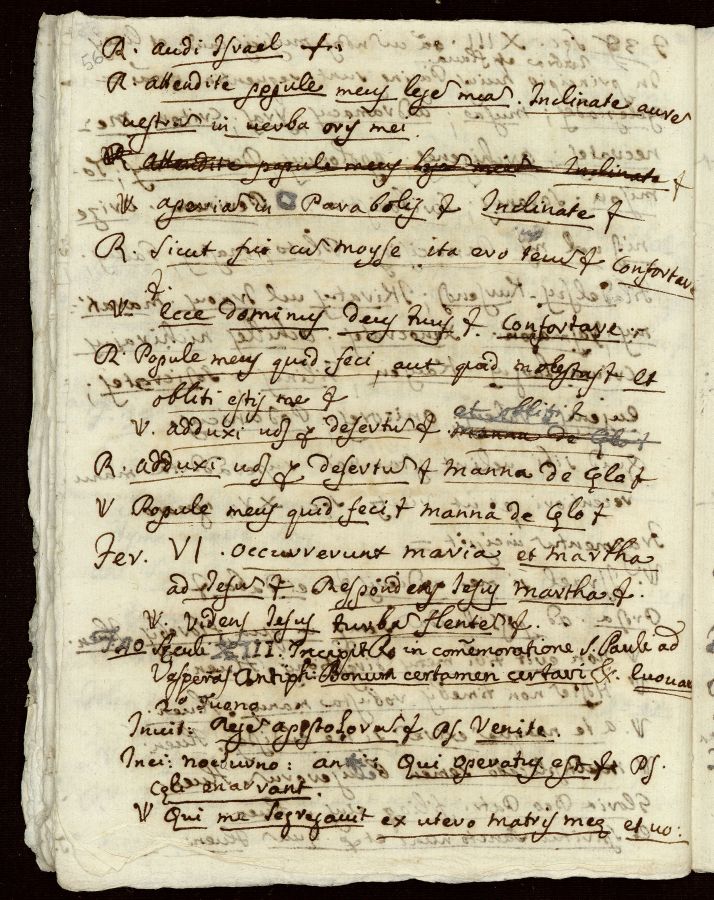 56
R. audi Israel +.
R. attendite popule meus legē meā. Inclinate aurē
vestrā in verba oris mei.
R. attendite popule meus legē meā Inclinate +
V aperiā in Parabolis + Inclinate +
R. Sicut fui cū Moyse ita ero tecū + Confortare
+.
V. Ecce dominus deus tuus +. Confortare.
R. Popule meus quid feci, aut quid molestus + et
obliti estis me +
et obliti +
V. adduxi vos p desertū + manna de çelo +
R. adduxi vos p desertū + manna de çelo +
V Popule meus quid feci + manna de çelo +
Fer. VI. occurrerunt maria et martha
ad Jesū +. Respondens Jesus martha +.
V. Videns Jesus turbas flentes +.
940 Seculi XIII. Incipit in com̄emoratione S. Pauli ad
Vesperas Antiph: Bonum certamen certavi &. Euouae
Invit: Regē apostolorū + Ps Venite.
In ei: nocturno: an Qui operatus est + Ps.
Çeli enarrant.
V Qui me segregavit ex utero matris meę et vo: